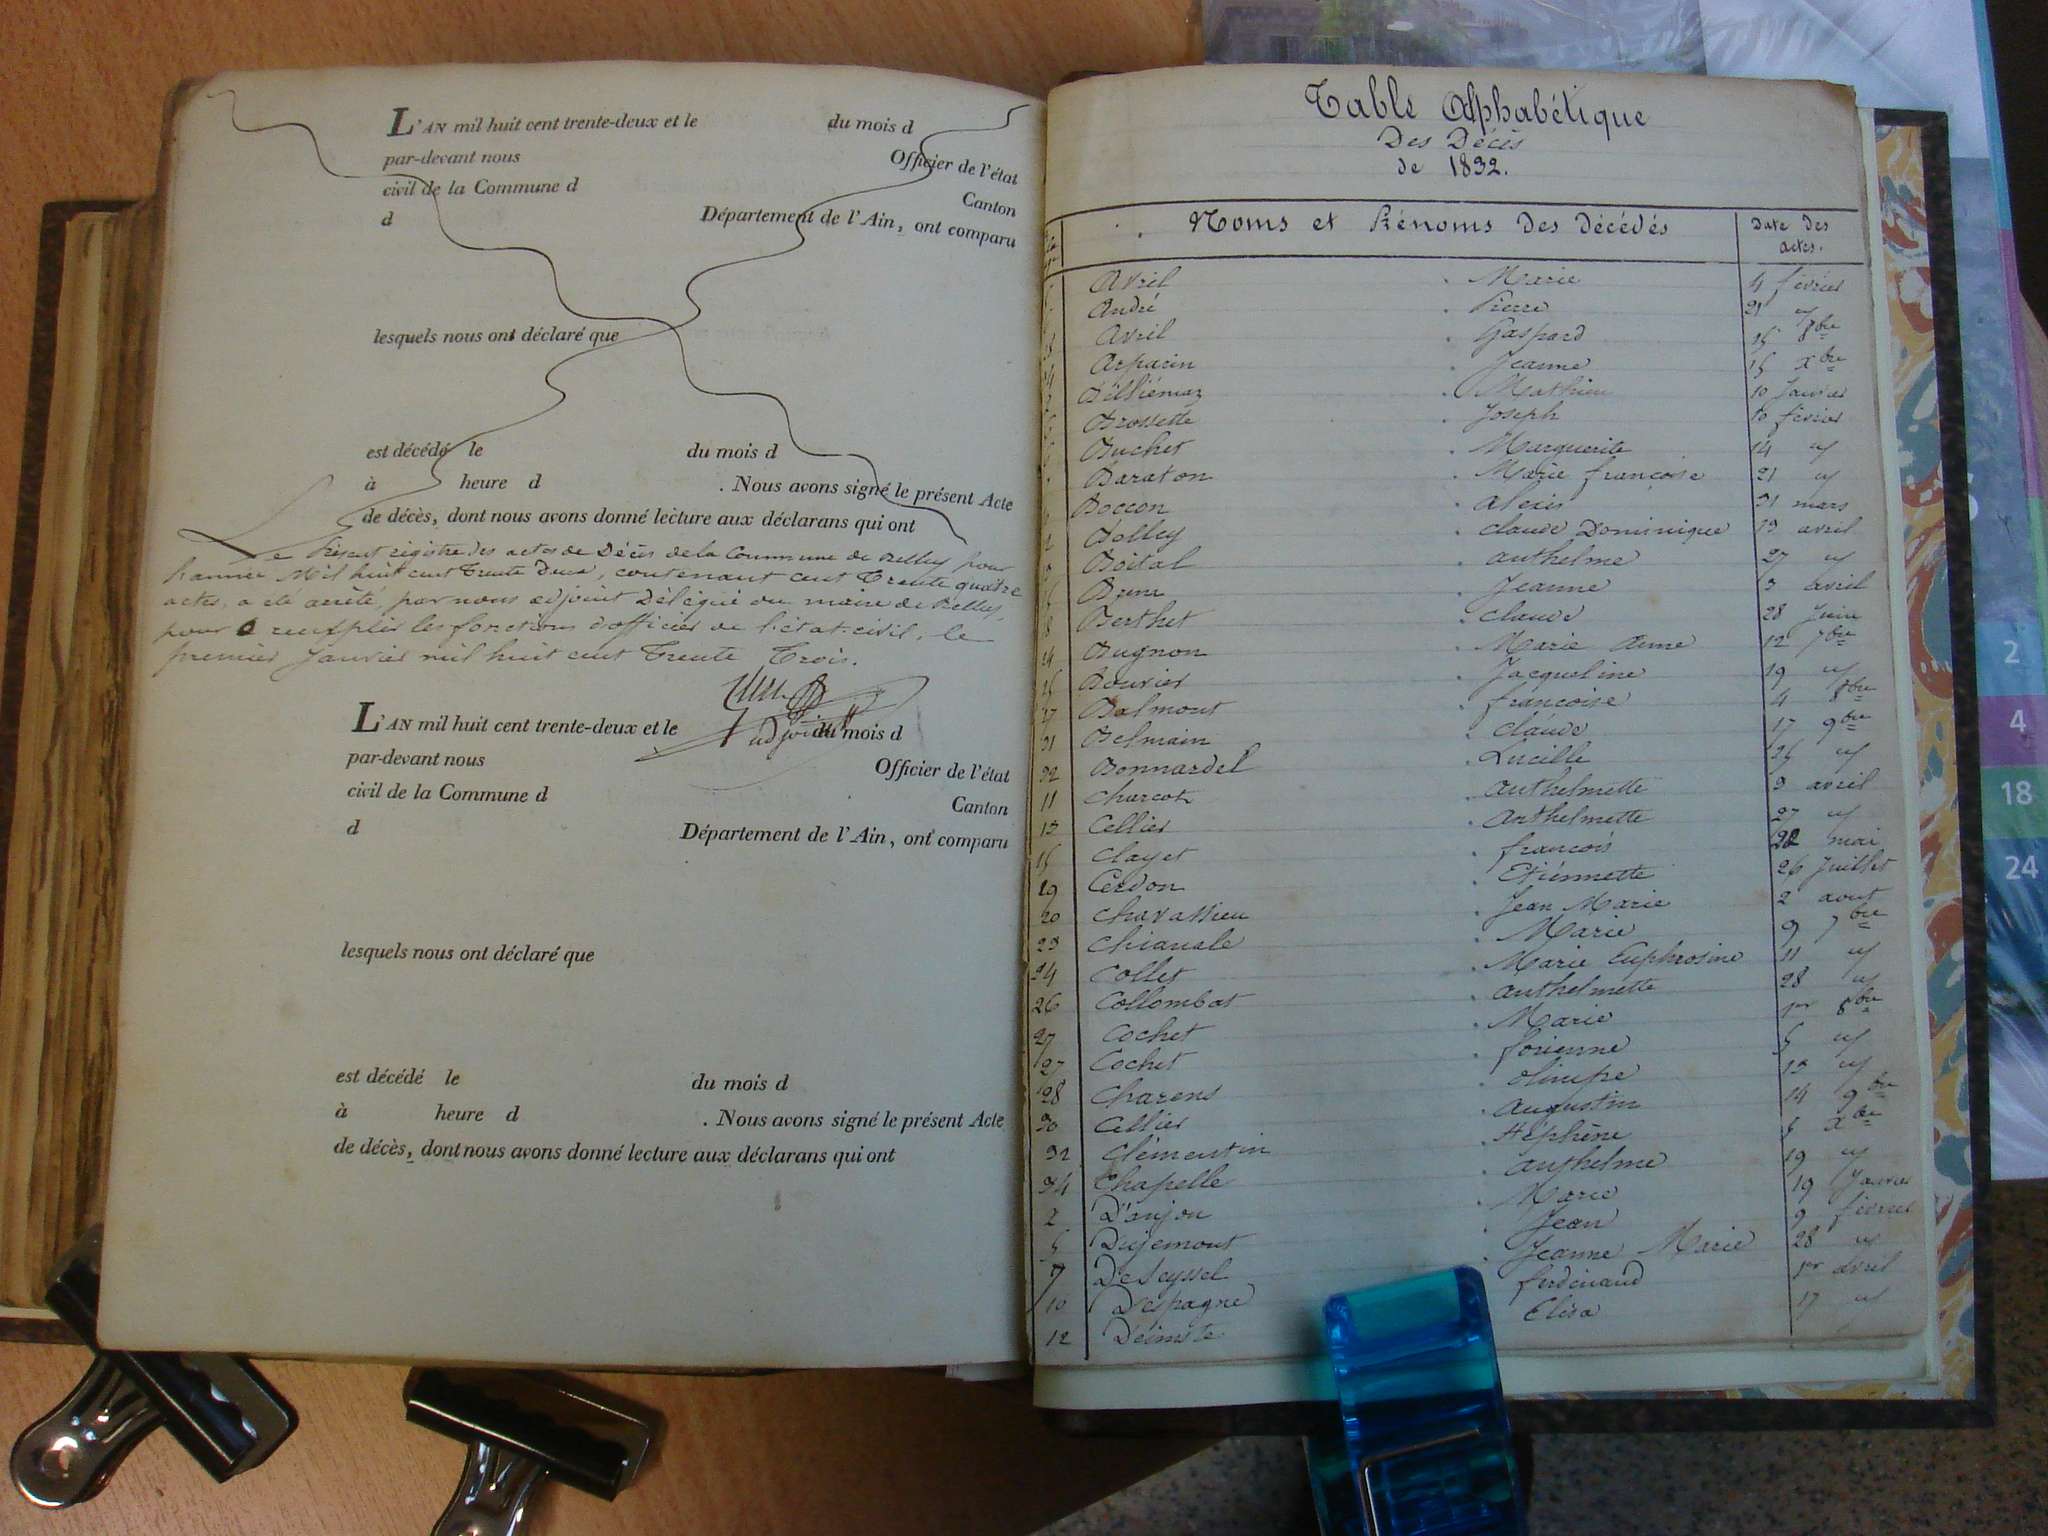 L'AN mil huit cent trente-deux et le du mois d
par-devant nous Officier de l'état
civil de la Commune d Canton
d Département de l'Ain, ont comparu
lesquels nous ont déclaré que
est décédé le du mois d
à heure d . Nous avons signé le présent Acte
de décès, dont nous avons donné lecture aux déclarans qui ont
Le Présent registre des actes de Décès de la Commune de Belley pour
l'année Mil huit cent Trente Deux, contenant cent Trente quatre
actes, a été arrêté, par nous adjoint Délégué du maire de Belley,
pour remplir les fonctions d'officier de l'état-civil, le
premier Janvier mil huit cent Trente Trois.
adjoint
L'AN mil huit cent trente-deux et le du mois d
par-devant nous Officier de l'état
civil de la Commune d Canton
d Département de l'Ain, ont comparu
lesquels nous ont déclaré que
est décédé le du mois d
à heure d . Nous avons signé le présent Acte
de décès, dont nous avons donné lecture aux déclarans qui ont
Table Alphabétique
Des Décès
de 1832.
Noms et Prénoms Des Décédés Date des
actes.
Avril . Marie 4 février
André . Pierre 21 "
Avril . Gaspard 15 8bre
Arparin . Jeanne 15 Xbre
. Mathieu 10 Janvier
Brossette . Joseph 10 février
Buchet . Marguerite 14 "
Baraton . Marie francoise 21 "
Boccon . alexis 31 mars
Bolley . Claude Dominique 13 avril
Boital . anthelme 27 "
Brun . Jeanne 3 avril
Berthet . Claude 28 Juin
Bugnon . Marie Anne 12 7bre
Bouvier . Jacqueline 19 "
Balmont . francoise 4 8bre
31 Belmain . Claude 17 9bre
32 Bonnardel . Lucille 25 "
11 Charcot . anthelmette 9 avril
13 Cellier . anthelmette 27 "
15 Clayet . francois mai
19 Cerdon . Etiennette 26 Juillet
20 Chavassieu . Jean Marie 2 aout
23 Chianale . Marie 9 7bre
24 Collet . Marie Euphrosine 11 "
26 Collombat . anthelmette 28 "
27 Cochet . Marie 1er 8bre
27 Cochet . forienne 5 "
28 Charens . Olimpe 13 "
30 Cellier . Augustin 14 9bre
32 Clémentin . Stéphène 5 Xbre
34 Chapelle . Anthelme 19 "
2 D'anjou . Marie 19 Janvier
5 Dujemont . Jean 9 février
7 De Seyssel . Jeanne Marie 28 "
10 Despagne ferdinand 1er avril
12 Eliza 17 "
2
4
18
24